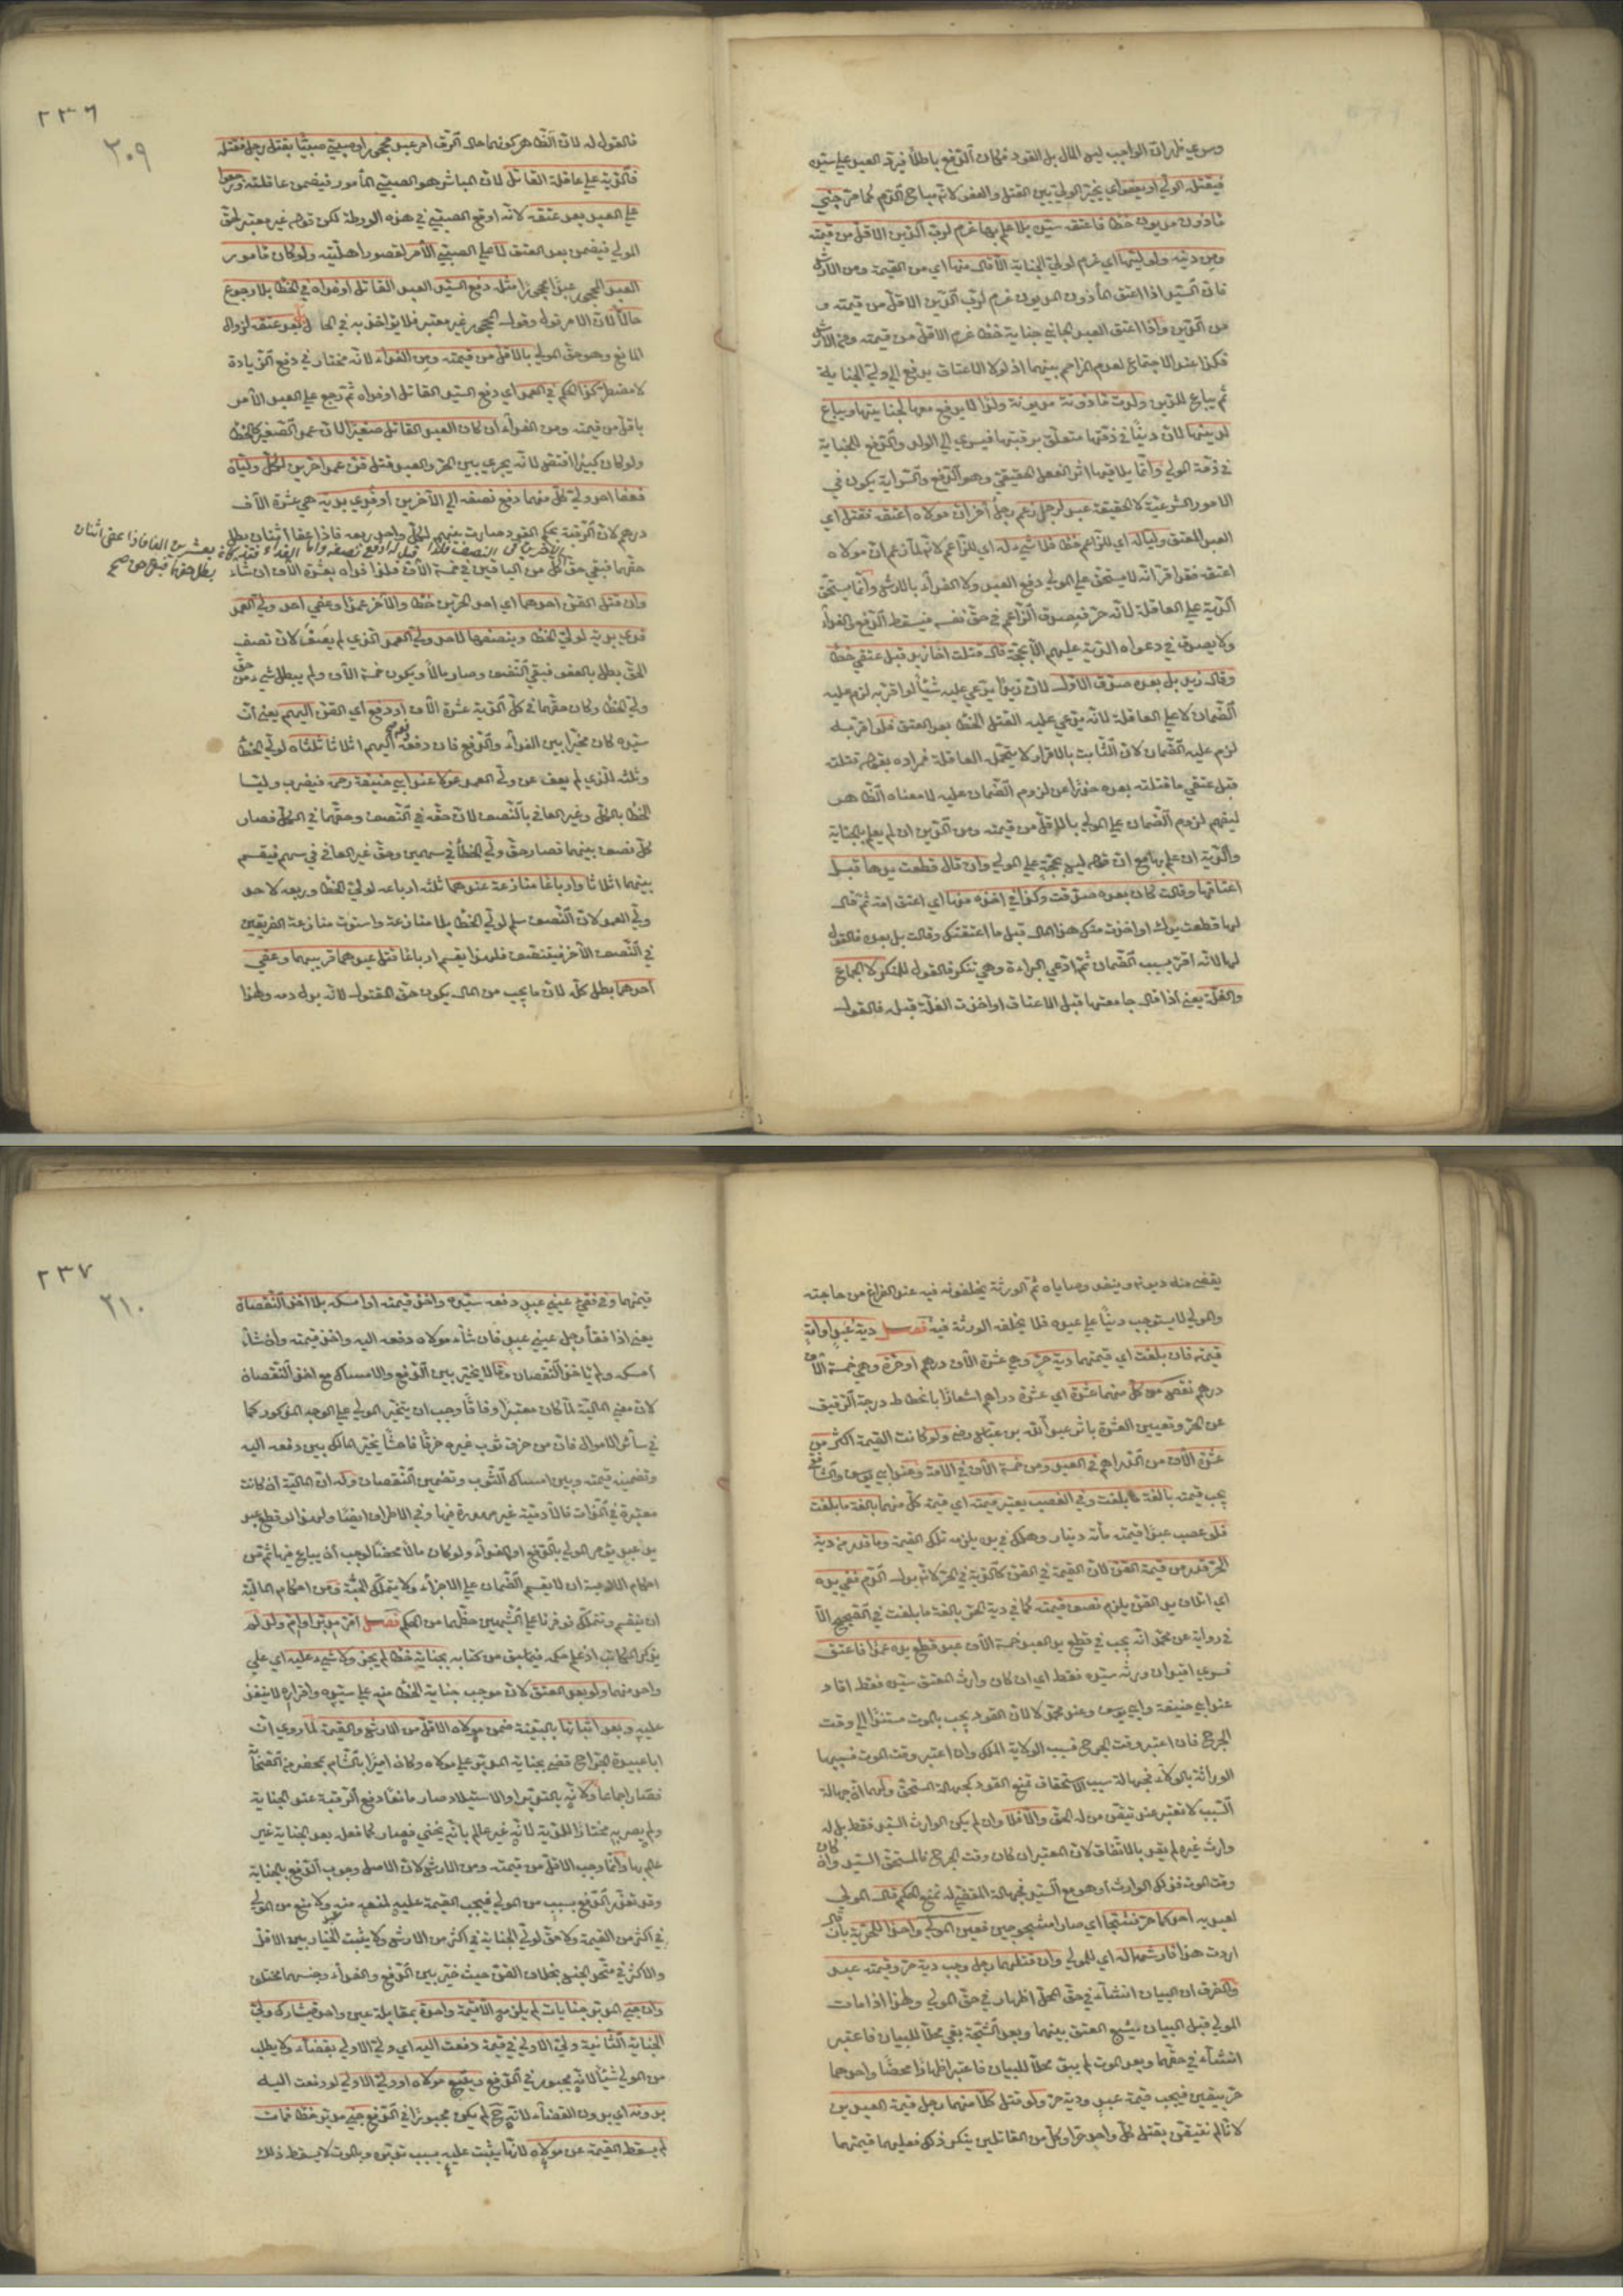 وسري ظهر ان الواجب ليس المال بل القود فكان الدفع باطلا فيرد العبد علي سيده
فيقتله الولي او يعفو اي يخير الولي بين القتل والعفو لانه مباح الدم كما مر جني
ماذون مديون خطأ فاعتقه سيده بلا علم بها غرم لرب الدين الاقل من قيمته
ومن دينه ولوليها اي غرم لولي الجناية الاقل منها اي من القيمة ومن الارش
فان السيد اذا اعتق الماذون المديون غرم لرب الدين الاقل من قيمته و
من الدين واذا اعتق العبد الجاني جناية خطأ غرم الاقل من قيمته ومن الارش
فكذا عند الاجتماع لعدم المزاحم بينهما اذ لولا الاعتاق يدفع الي ولي الجناية
ثم يباع للدين ولدت ماذونة مديونة ولدا لا يدفع معها لجنايتها ويباع
لدينها لان دينا في ذمتها متعلق برقبتها فيسري الي الولد والدفع للجناية
في ذمة المولي وانما يلاقيها اثر الفعل الحقيقي وهو الدفع والسراية يكون في
الامور الشرعية لا الحقيقية عبد لرجل زعم رجل آخر ان مولاه اعتقه فقتل اي
العبد المعتق وليا له اي للزاعم خطأ فلا شيء له اي للزاعم لانه لما زعم ان مولاه
اعتقه فقد اقر انه لا يستحق علي المولي دفع العبد ولا الفداء بالارش وانما يستحق
الدية علي العاقلة لانه حر فيصدق الزاعم في حق نفسه فيسقط الدفع والفداء
ولا يصدق في دعواه الدية عليهم الا بحجة قال قتلت اخا زيد قبل عتقي خطأ
وقال زيد بل بعده صدق الاول لان زيدا يدعي عليه شيئا لو اقر به لزم عليه
الضمان لا علي العاقلة لانه يدعي عليه القتل الخطأ بعد العتق فلو اقر به
لزم عليه الضمان لان الثابت بالاقرار لا يتحمل العاقلة فمراده بقوله قتلته
قبل عتقي ما قتلته بعده حذرا عن لزوم الضمان عليه لا معناه الظاهر
ليفهم لزوم الضمان علي المولي بالاقل من قيمته ومن الدين ان لم يعلم بالجناية
والدية ان علم بها مع ان قوله ليس بحجة علي المولي وان قال قطعت يدها قبل
اعتاقها وقالت كان بعده صدقت وكذا في اخذه منها اي اعتق امة ثم قال
لها قطعت يدك او اخذت منك هذا المال قبل ما اعتقتك وقالت بل بعده فالقول
لها لانه اقر بسبب الضمان ثم ادعي البراءة وهي تنكر فالقول للمنكر لا الجماع
والغلة يعني اذا قال جامعتها قبل الاعتاق او اخذت الغلة قبله فالقول
٢٣٦
٣٠٩
فالقول له لان الظاهر كونهما حال الرق امر عبد محجور او صبي صبيا بقتل رجل فقتله
فالدية علي عاقلة القاتل لان المباشر هو الصبي المأمور فيضمن عاقلته ورجعوا
علي العبد بعد عتقه لانه اوقع الصبي في هذه الورطة لكن قوله غير معتبر لحق
المولي فيضمن بعد العتق لا علي الصبي الآمر لقصور اهليته ولو كان مأمور
العبد المحجور عبدا محجورا مثله دفع السيد العبد القاتل او فداه في الخطأ بلا رجوع
حالا لان الامر قول وقول المحجور غير معتبر فلا يؤاخذ به في الحال بل بعد عتقه لزوال
المانع وهو حق المولي بالاقل من قيمته ومن الفداء لانه مختار في دفع الزيادة
لا مضطر كذا الحكم في العمد اي دفع السيد القاتل او فداه ثم رجع علي العبد الآمر
باقل من قيمته ومن الفداء ان كان العبد القاتل صغيرا لان عمد الصغير كالخطأ
ولو كان كبيرا اقتص لانه يجري بين الحر والعبد قتل قن عمدا حرين لكل ولياه
فعفا احد ولي كل منهما دفع نصفه الي الآخرين او فدي بدية هي عشرة آلاف
درهم لان الرقبة بحكم القود صارت بينهم لكل واحد ربعه فاذا عفا اثنان بطل
حقهما فبقي حق كل من الباقين في خمسة آلاف فلذا فداه بعشرة الاف ان شاء
وان قتل القن احدهما اي احد الحرين خطأ والآخر عمدا وعفي احد ولي العمد
فدي بدية لولي الخطأ وبنصفها لاحد ولي العمد الذي لم يعف لان نصف
الحق بطل بالعفو فبقي النصف وصار مالا ويكون خمسة آلاف ولم يبطل شيء من حق
ولي الخطأ وكان حقهما في كل الدية عشرة آلاف او دفع اي القن اليهم يعني ان
سيده كان مخيرا بين الفداء والدفع فان دفعه اليهم اثلاثا ثلثاه لولي الخطأ
وثلثه للذي لم يعف من ولي العمد عولا عند ابي حنيفة رحمه فيضرب وليا
الخطأ بالكل وغير العافي بالنصف لان حقه في النصف وحقهما في الكل فصار
كل نصف بينهما فصار حق ولي الخطأ في سهمين وحق غير العافي في سهم فيقسم
بينهما اثلاثا وارباعا منازعة عندهما ثلثة ارباعه لولي الخطأ وربعه لاحد
ولي العمد لان النصف سلم لولي الخطأ بلا منازعة واستوت منازعة الفريقين
في النصف الآخر فينتصف فلهذا يقسم ارباعا قتل عبدهما قريبهما وعفي
احدهما بطل كله لان ما يجب من المال يكون حق المقتول لانه بدل دمه ولهذا
يقضي منه ديونه وينفذ وصاياه ثم الورثة يخلفونه فيه عند الفراغ من حاجته
والمولي لا يستوجب دينا علي عبده فلا يخلفه الورثة فيه فصل دية عبد او امة
قيمته فان بلغت اي قيمتهما دية حر وهي عشرة آلاف درهم او حرة وهي خمسة آلاف
درهم نقص من كل منهما عشرة اي عشرة دراهم اشعارا بانحطاط درجة الرقيق
عن الحر وتعيين العشرة باثر عبد الله بن عباس رضي ولو كانت القيمة اكثر من
عشرة آلاف من الدراهم في العبد ومن خمسة آلاف في الامة وعند ابي يوسف والشافعي
يجب قيمته بالغة ما بلغت وفي الغصب يعتبر قيمته اي قيمة كل منهما بالغة ما بلغت
فلو غصب عبدا قيمته مأة دينار وهلك في يده يلزمه تلك القيمة وما قدر من دية
الحر قدر من قيمة القن لان القيمة في القن كالدية في الحر لانه بدل الدم ففي يده
اي اتلاف يد القن يلزم نصف قيمته كما في دية الحر بالغة ما بلغت في الصحيح الا
في رواية عن محمد انه يجب في قطع يد العبد خمسة آلاف عبد قطع يده عمدا فاعتق
فسري اقيد ان ورثه سيده فقط اي ان كان وارث المعتق سيده فقط اقاد
عند ابي حنيفة وابي يوسف وعند محمد لا لان القود يجب بالموت مستندا الي وقت
الجرح فان اعتبر وقت الجرح فسبب الولاية الملك وان اعتبر وقت الموت فسببها
الوراثة بالولاء فجهالة سبب الاستحقاق تمنع القود كجهالة المستحق ولهما ان جهالة
السبب لا تعتبر عند تيقن من له الحق والا فلا وان لم يكن الوارث السيد فقط بل له
وارث غيره لم يقد بالاتفاق لان المعتبر ان كان وقت الجرح فالمستحق السيد وان كان
وقت الموت فذلك الوارث او هو مع السيد فجهالة المقضي له تمنع الحكم قال المولي
لعبديه احدكما حر فشجا اي صارا مشجوجين فعين المولي واحدا للحرية بان قال
اردت هذا فارشهما له اي للمولي وان قتلهما رجل وجب دية حر وقيمة عبد
والفرق ان البيان انشاء في حق المحل اظهار في حق المولي ولهذا اذا مات
المولي قبل البيان يشيع العتق بينهما وبعد الشجة بقي محلا للبيان فاعتبر
انشاء في حقهما وبعد الموت لم يبق محلا للبيان فاعتبر اظهارا محضا واحدهما
حر بيقين فيجب قيمة عبد ودية حر ولو قتل كلا منهما رجل قيمة العبدين
لانا لم نتيقن بقتل كل واحد حرا وكل من القاتلين ينكر ذلك فعليهما قيمتهما
٢٣٧
٢١٠
قيمتهما وفي فقئ عيني عبد دفعه سيده واخذ قيمته او امسكه بلا اخذ النقصان
يعني اذا فقأ رجل عيني عبد فان شاء مولاه دفعه اليه واخذ قيمته وان شاء
امسكه ولم ياخذ النقصان وقالا يخير بين الدفع والامساك مع اخذ النقصان
لان معني المالية لما كان معتبرا وفاقا وجب ان يتخير المولي علي الوجه المذكور كما
في سائر الاموال فان من خرق ثوب غيره خرقا فاحشا يخير المالك بين دفعه اليه
وتضمينه قيمته وبين امساك الثوب وتضمين النقصان وله ان المالية ان كانت
معتبرة في الذات فالآدمية غير مهدرة فيها وفي الاطراف ايضا ولهذا لو قطع عبد
يد عبد يؤمر المولي بالدفع او الفداء ولو كان مالا محضا لوجب ان يباع فيها ثم من
احكام الآدمية ان لا ينقسم الضمان علي الاجزاء ولا يتملك الجثة ومن احكام المالية
ان ينقسم ويتملك فوفرنا علي الشبهين حظهما من الحكم فصل اقر مدبر او ام ولد لم
يذكر المكاتب اذ علم حكمه فيما سبق من كتابه بجناية خطأ لم يجز ولا شيء عليه اي علي
واحد منهما ولو بعد العتق لان موجب جناية الخطأ منه علي سيده واقراره لا ينفذ
عليه وبعد اثباتها بالبينة ضمن مولاه الاقل من الارش والقيمة لما روي ان
ابا عبيدة الجراح قضي بجناية المدبر علي مولاه وكان اميرا بالشام بمحضر من الصحابة
فصار اجماعا ولانه بالتدبير او الاستيلاد صار مانعا دفع الرقبة عند الجناية
ولم يصر به مختارا للدية لانه غير عالم بانه يجني فصار كما فعله بعد الجناية غير
عالم بها وانما وجب الاقل من قيمته ومن الارش لان الاصل وجوب الدفع بالجناية
وقد تعذر الدفع بسبب من المولي فيجب القيمة عليه لمنعه منه ولا منع من المولي
في اكثر من القيمة ولا حق لولي الجناية في اكثر من الارش ولا يثبت الخيار بين الاقل
والاكثر في متحد الجنس بخلاف القن حيث خير بين الدفع والفداء وجنسهما مختلف
وان جني المدبر جنايات لم يلزمه الا قيمة واحدة بمقابلة عين واحد فيشارك ولي
الجناية الثانية ولي الاولي في قيمة دفعت اليه اي ولي الاولي بقضاء ولا يطلب
من المولي شيئا لانه مجبور في الدفع ويتبع مولاه او ولي الاولي لو دفعت اليه
بدونه اي بدون القضاء لانه ح لم يكن مجبورا في الدفع جني مدبر خطأ فمات
لم يسقط القيمة عن مولاه لانها يثبت عليه بسبب تدبيره وبالموت لا يسقط ذلك